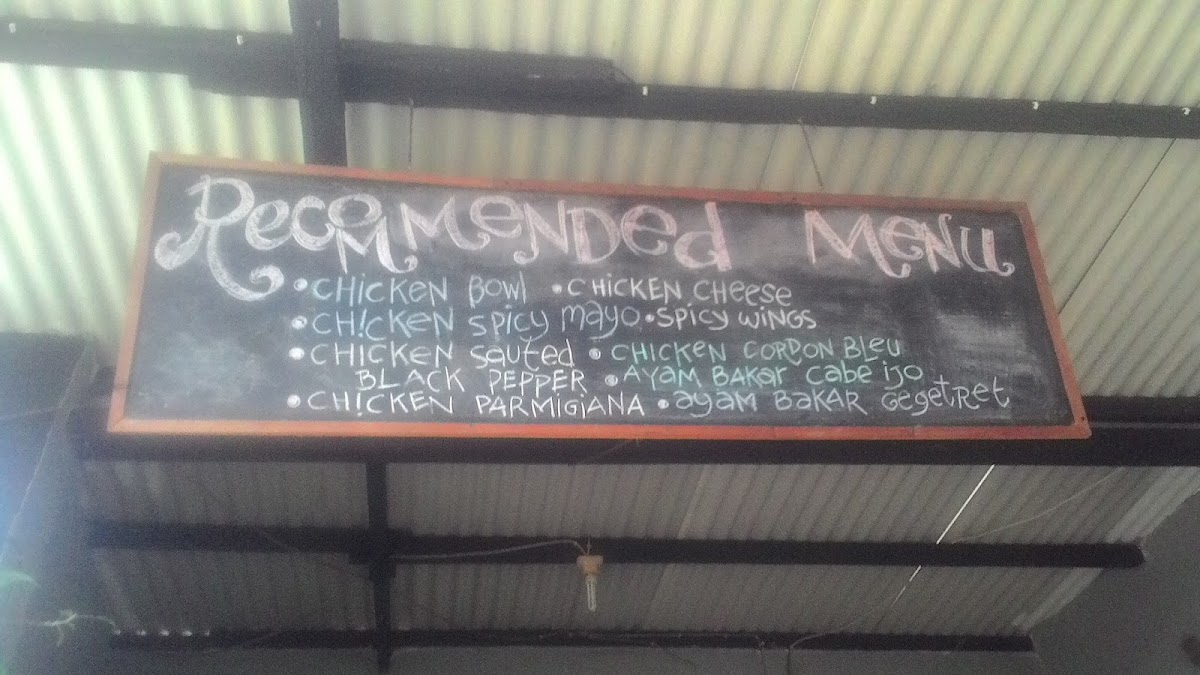 RecoMMeNDed MeNU
• CHicKeN Bowl • CHICKEN CHeese
• CH!CKeN SPicy Mayo • SPicy WiNGS
• CHICKeN Sauted • CHICKEN CORDON Bleu
BLACK PEPPER • AYAM BAKAr Cabe iJo
• CH!CKEN PARMiGiANA • AYAM BAKAR GeGetRet